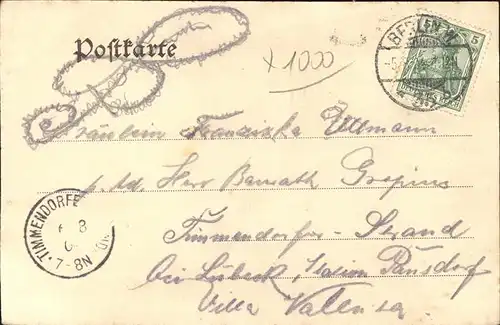 Postkarte
x 1000
BERLIN W.
5
Fräulein Franziska Ullmann
p. Ad. Herr Baurath Gropius
Timmendorfer-Strand
bei Lübeck, Station Pansdorf
Villa Valeska
TIMMENDORFE
8
7-8N